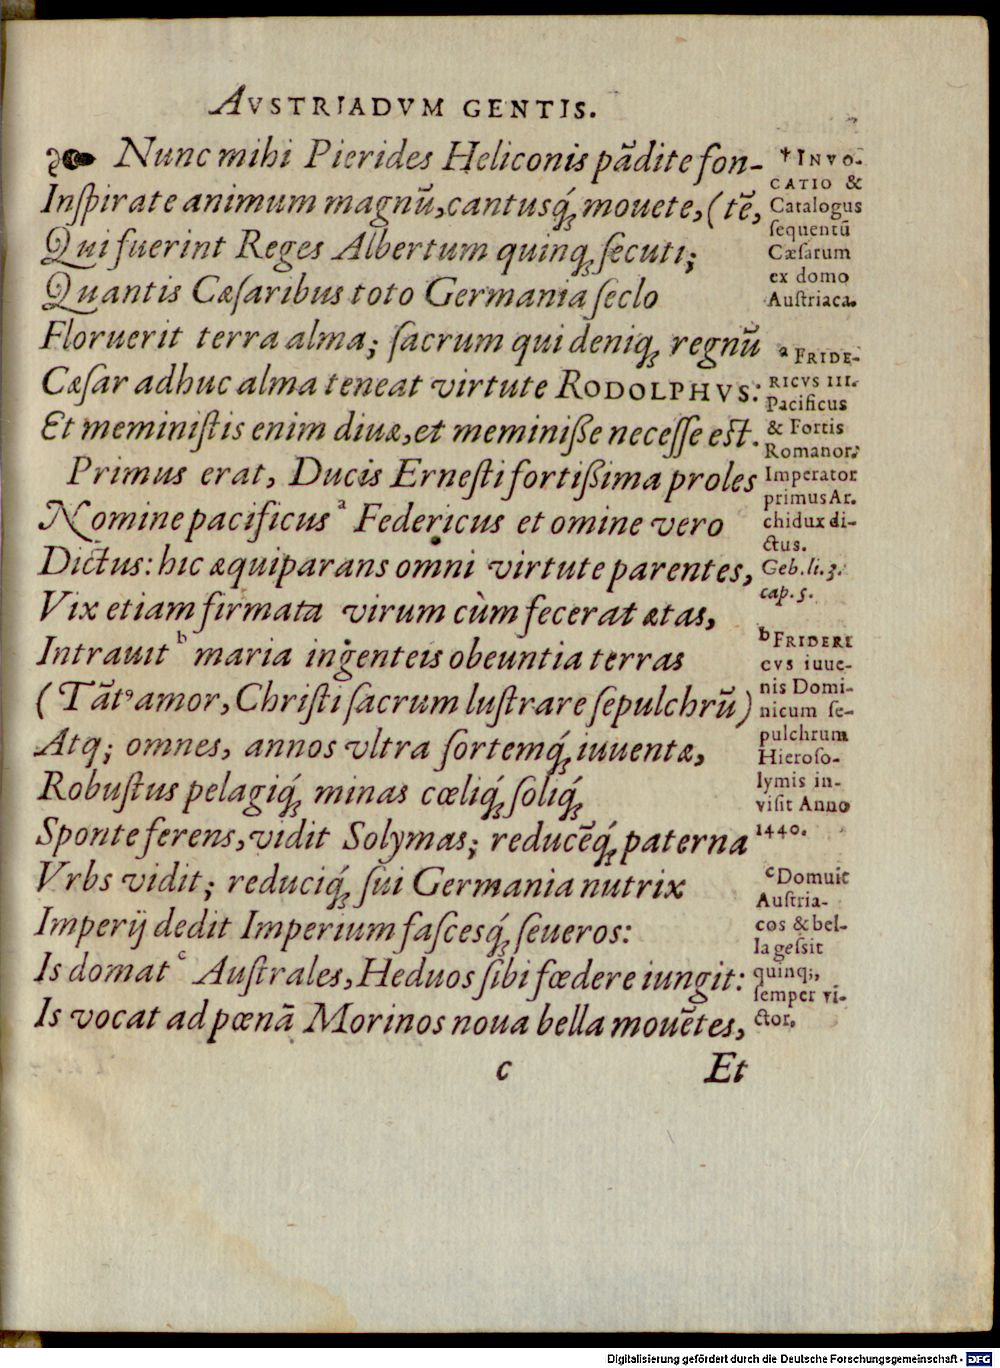 AVSTRIADVM GENTIS.
Nunc mihi Pierides Heliconis pãdite fon-
Inſpirate animum magnũ, cantusq́ꝫ mouete, (tẽ,
Qui fuerint Reges Albertum quinqꝫ ſecuti;
Quantis Cæſaribus toto Germania ſeclo
Floruerit terra alma; ſacrum qui deniqꝫ regnũ
Cæſar adhuc alma teneat virtute RODOLPHVS:
Et meminiſtis enim diuæ, et meminiße neceſſe eſt.
Primus erat, Ducis Erneſti fortißima proles
Nomine pacificus ᵃ Federicus et omine vero
Dictus: hic æquiparans omni virtute parentes,
Vix etiam firmata virum cùm fecerat ætas,
Intrauit ᵇ maria ingenteis obeuntia terras
(Tãtꝰ amor, Chriſti ſacrum luſtrare ſepulchrũ)
Atq; omnes, annos vltra ſortemq́ꝫ iuuentæ,
Robuſtus pelagiq́ꝫ minas cœliq́ꝫ ſoliq́ꝫ
Sponte ferens, vidit Solymas; reducẽq́ꝫ paterna
Vrbs vidit; reduciq́ꝫ ſui Germania nutrix
Imperij dedit Imperium faſcesq́ꝫ ſeueros:
Is domat ᶜ Auſtrales, Heduos ſibi fœdere iungit:
Is vocat ad pœnã Morinos noua bella mouẽtes,
c Et
† INVO-
CATIO &
Catalogus
ſequentũ
Cæſarum
ex domo
Auſtriaca.
ᵃ FRIDE-
RICVS III.
Pacificus
& Fortis
Romanor.
Imperator
primus Ar.
chidux di-
ctus.
Geb. li. 3.
cap. 5.
ᵇ FRIDERI
cvs iuue-
nis Domi-
nicum ſe-
pulchrum
Hieroſo-
lymis in-
viſit Anno
1440.
ᶜ Domuit
Auſtria-
cos & bel-
la geſsit
quinq;,
ſemper vi-
ctor.
Digitalisierung gefördert durch die Deutsche Forschungsgemeinschaft - DFG